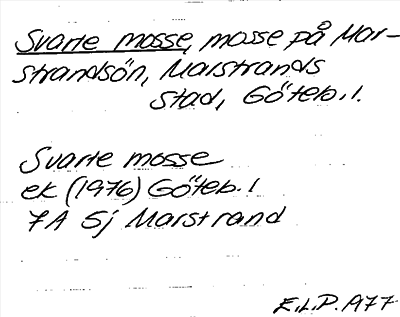 Svarte mosse, mosse på Mar-
strandsön, Marstrands
stad, Göteb. l.
Svarte mosse
ek (1976) Göteb. l
7A 5j Marstrand
E.L.P. 1977